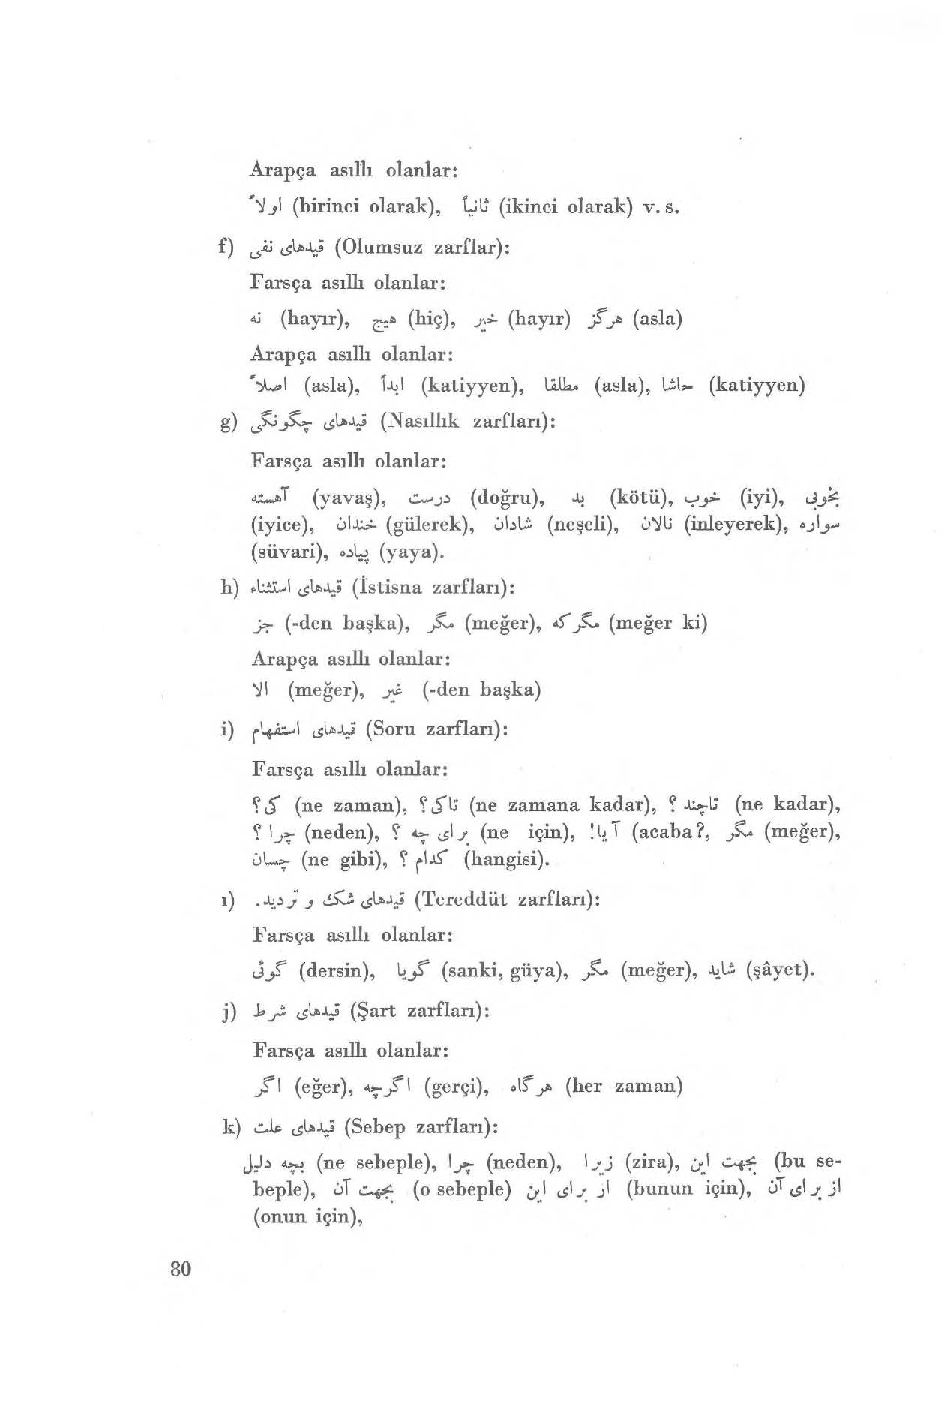 Arapça asıllı olanlar:
اولاً (birinci olarak), ثانیاً (ikinci olarak) v. s.
f) قیدهای نفی (Olumsuz zarflar):
Farsça asıllı olanlar:
نه (hayır), هیچ (hiç), خیر (hayır) هرگز (asla)
Arapça asıllı olanlar:
اصلاً (asla), ابداً (katiyyen), مطلقا (asla), حاشا (katiyyen)
g) قیدهای چگونگی (Nasıllık zarfları):
Farsça asıllı olanlar:
آهسته (yavaş), درست (doğru), بد (kötü), خوب (iyi), بخوبی
(iyice), خندان (gülerek), شادان (neşeli), نالان (inleyerek), سواره
(süvari), پیاده (yaya).
h) قیدهای استثناء (İstisna zarfları):
جز (-den başka), مگر (meğer), مگر که (meğer ki)
Arapça asıllı olanlar:
الا (meğer), غیر (-den başka)
i) قیدهای استفهام (Soru zarfları):
Farsça asıllı olanlar:
کی؟ (ne zaman), تاکی؟ (ne zamana kadar), تاچند ؟ (ne kadar),
چرا ؟ (neden), برای چه ؟ (ne için), آیا! (acaba?, مگر (meğer),
چسان (ne gibi), کدام ؟ (hangisi).
ı) قیدهای شک و تردید. (Tereddüt zarfları):
Farsça asıllı olanlar:
گوئی (dersin), گویا (sanki, güya), مگر (meğer), شاید (şâyet).
j) قیدهای شرط (Şart zarfları):
Farsça asıllı olanlar:
اگر (eğer), اگرچه (gerçi), هرگاه (her zaman)
k) قیدهای علت (Sebep zarfları):
بچه دلیل (ne sebeple), چرا (neden), زیرا (zira), بجهت این (bu se-
beple), بجهت آن (o sebeple) از برای این (bunun için), از برای آن
(onun için),
80